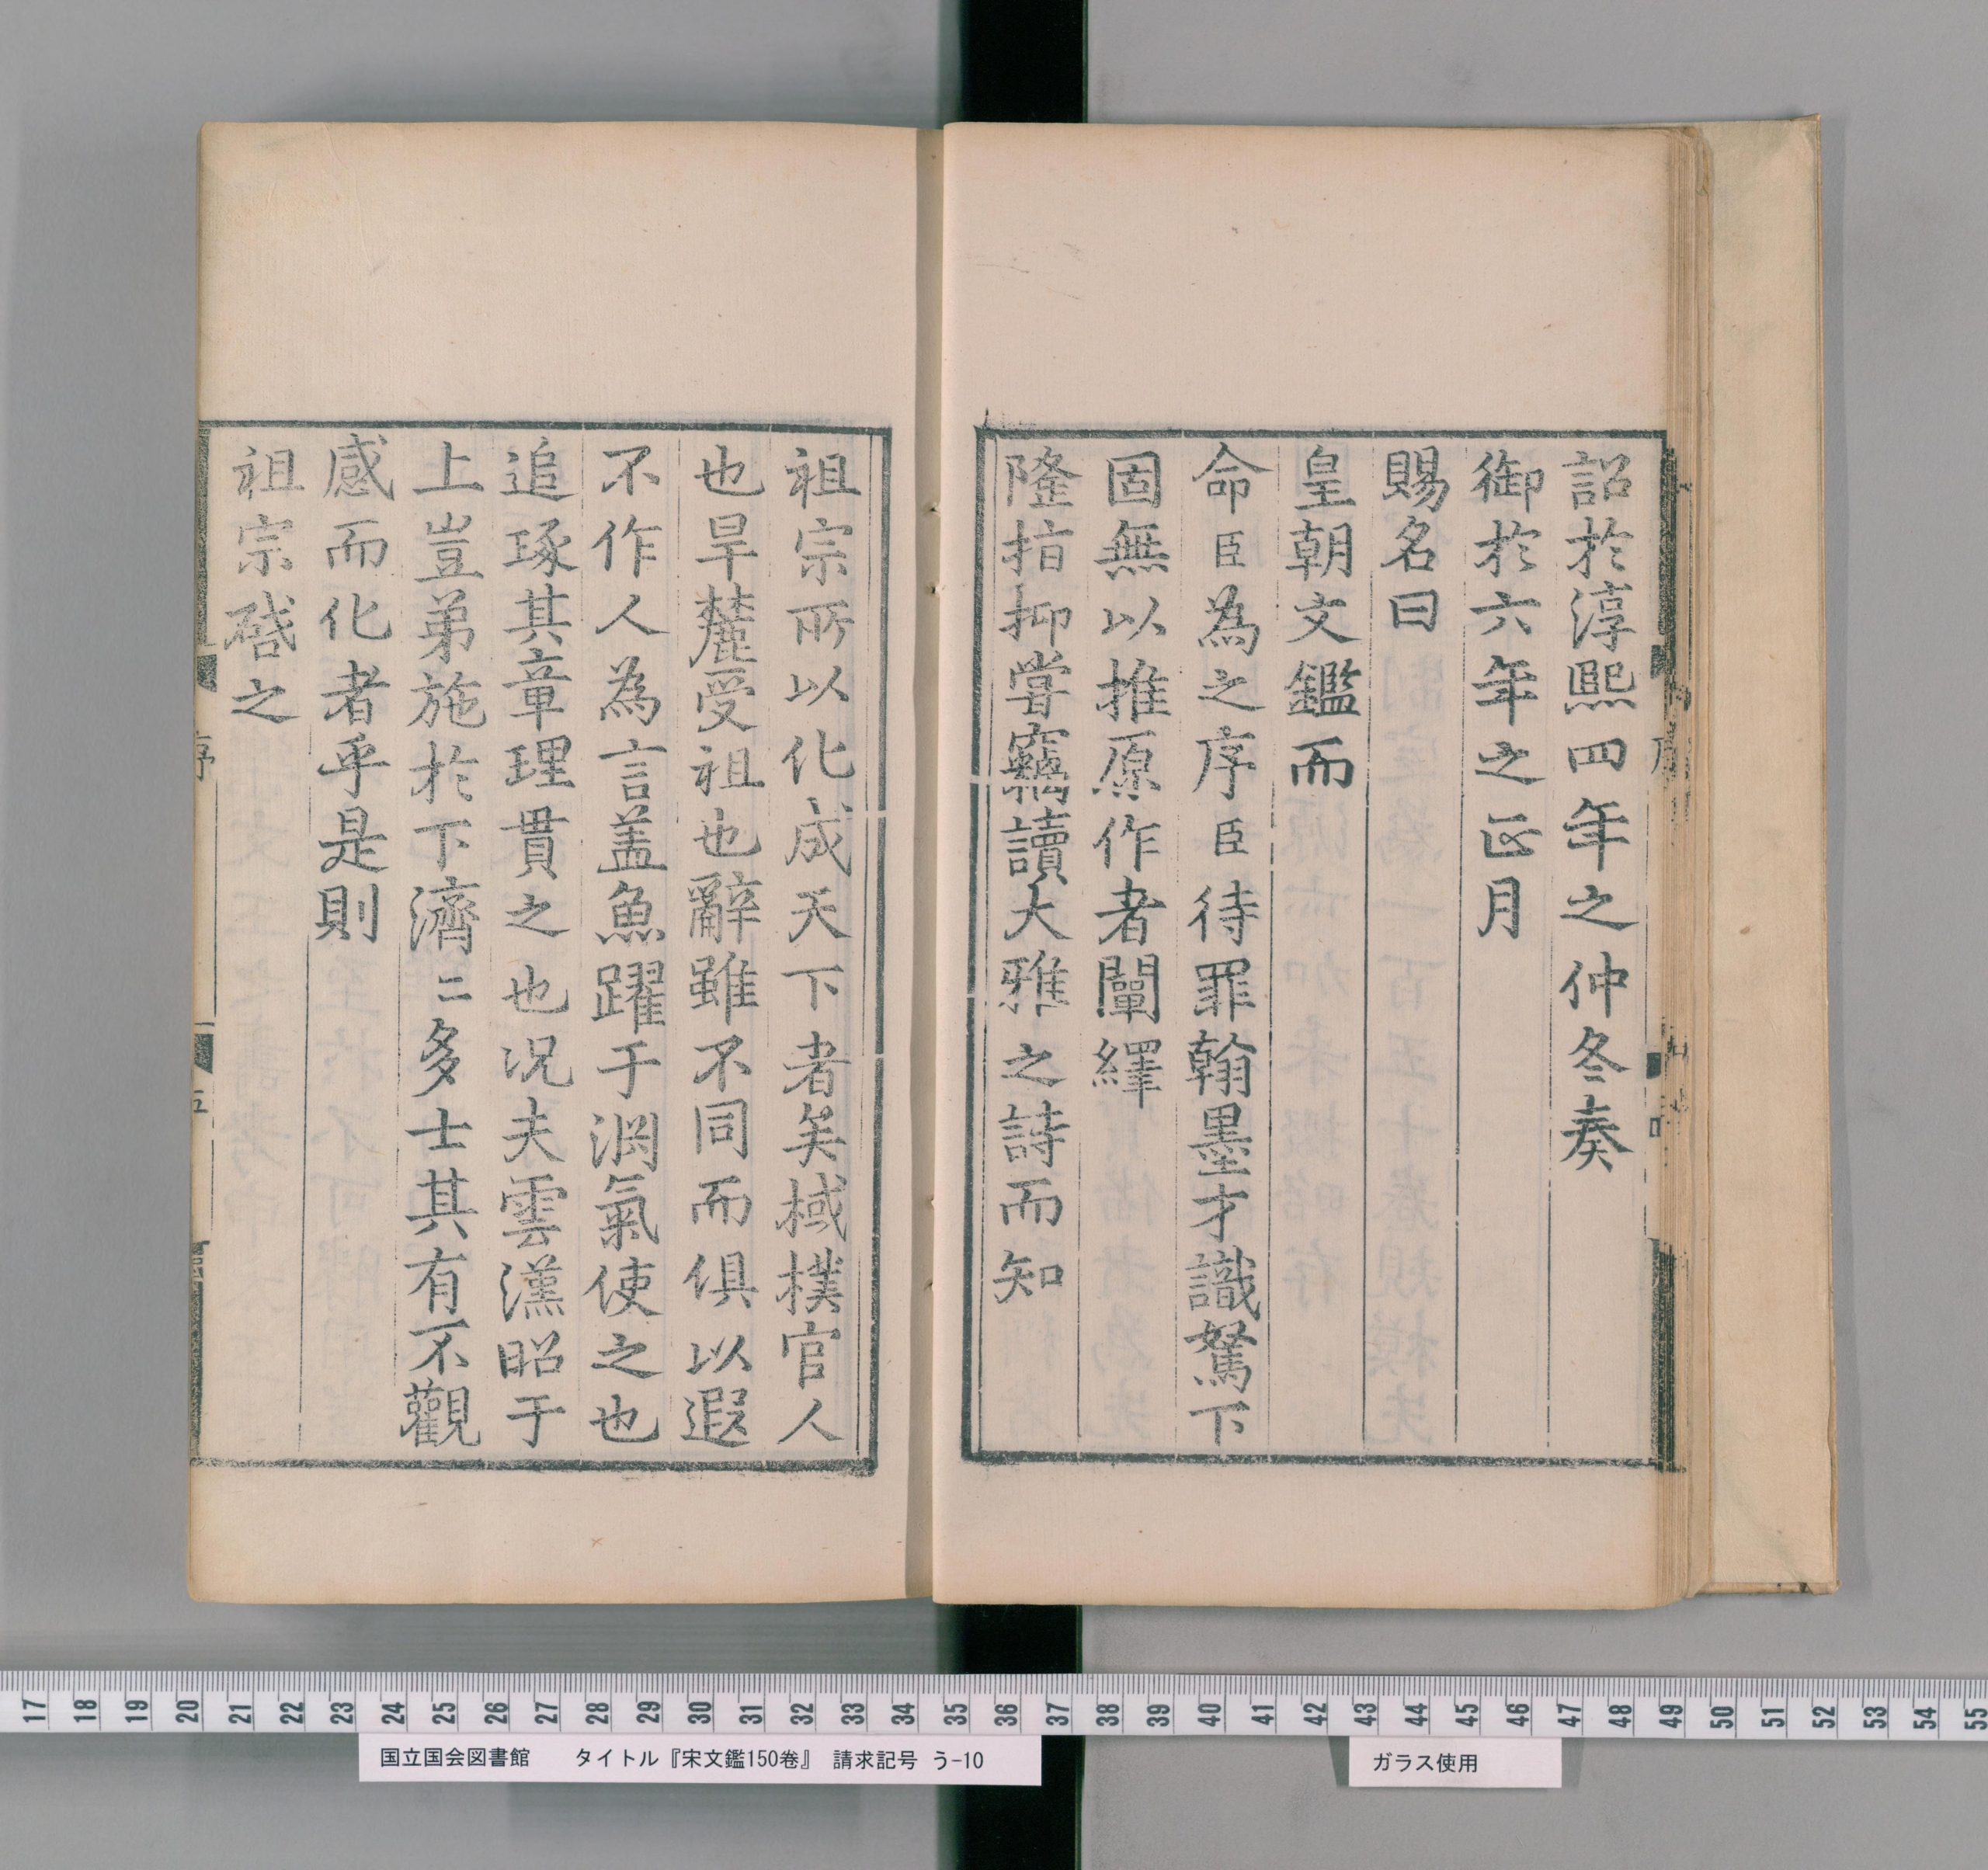 詔於淳熙四年之仲冬奏
御於六年之正月
賜名曰
皇朝文鑑而
命臣為之序臣待罪翰墨才識駑下
固無以推原作者闡繹
隆指抑嘗竊讀大雅之詩而知
祖宗所以化成天下者矣棫樸官人
也旱麓受祖也辭雖不同而俱以遐
不作人為言盖魚躍于淵氣使之也
追琢其章理貫之也况夫雲漢昭于
上豈弟施於下濟〻多士其有不觀
感而化者乎是則
祖宗啓之
序
五
17 18 19 20 21 22 23 24 25 26 27 28 29 30 31 32 33 34 35 36 37 38 39 40 41 42 43 44 45 46 47 48 49 50 51 52 53 54 55
国立国会図書館 タイトル『宋文鑑150巻』 請求記号 う-10
ガラス使用